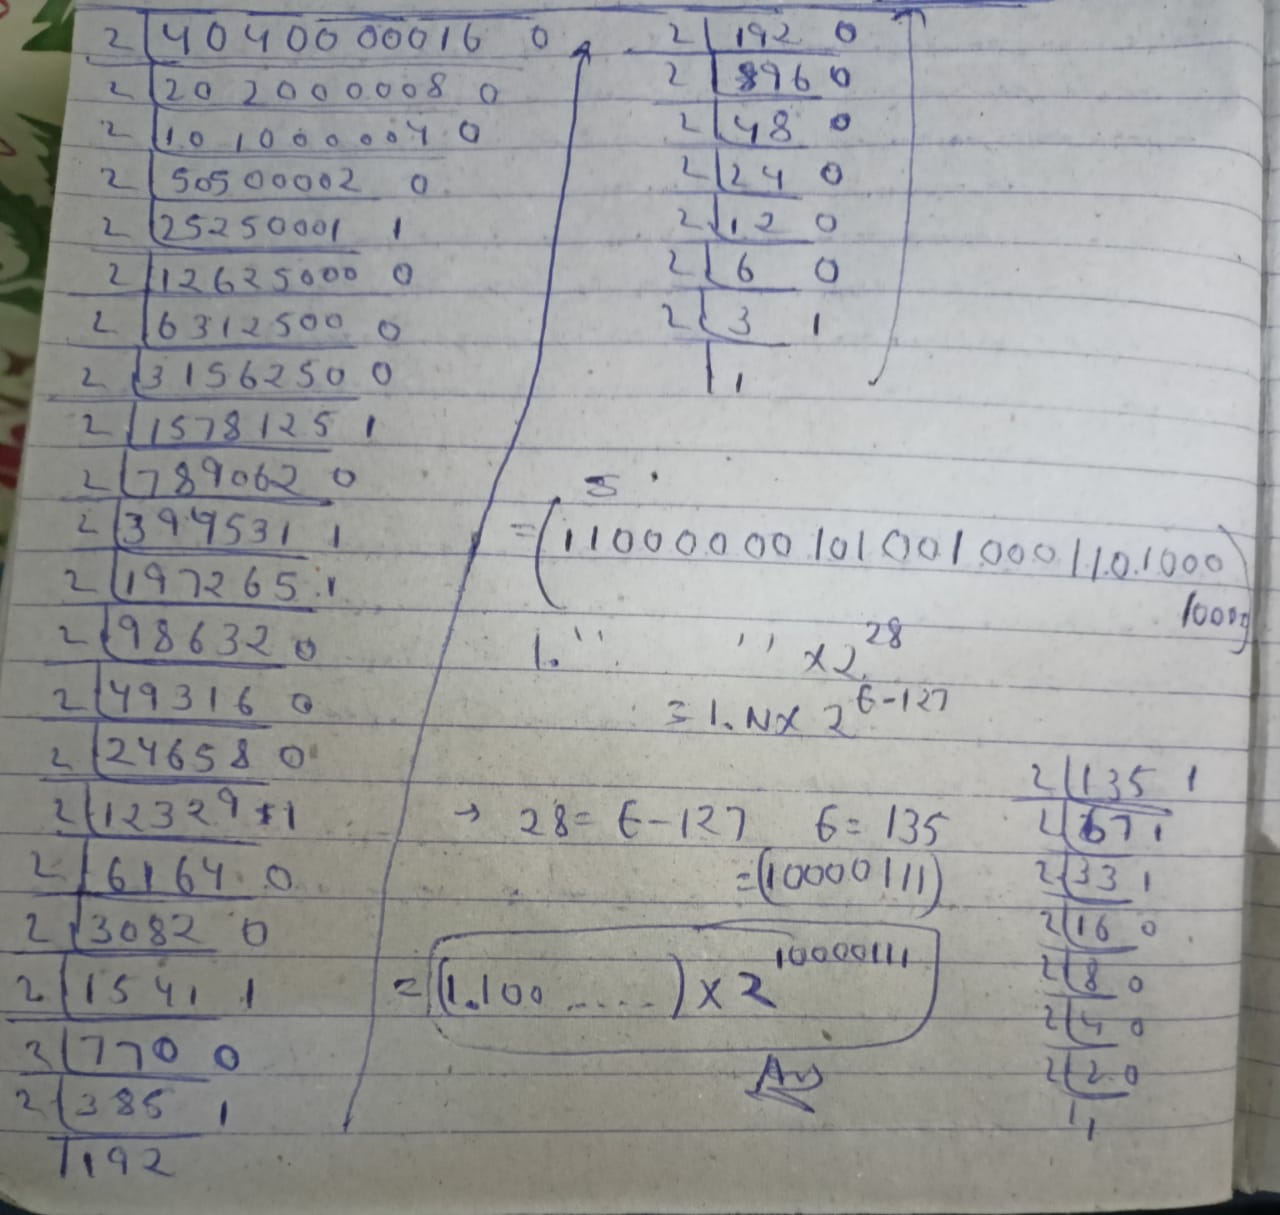 2 | 4040000016 0
2 | 2020000008 0
2 | 1010000004 0
2 | 50500002 0
2 | 25250001 1
2 | 12625000 0
2 | 6312500 0
2 | 3156250 0
2 | 1578125 1
2 | 789062 0
2 | 394531 1
2 | 197265 1
2 | 98632 0
2 | 49316 0
2 | 24658 0
2 | 12329 1
2 | 6164 0
2 | 3082 0
2 | 1541 1
2 | 770 0
2 | 385 1
192
2 | 192 0
2 | 96 0
2 | 48 0
2 | 24 0
2 | 12 0
2 | 6 0
2 | 3 1
1
= (11000000101001000110.1000
1000)
1. " " × 2^28
= 1.N × 2^E-127
→ 28 = E-127 E = 135
= (10000111)
= (1.100 .....) × 2^10000111
Ans
2 | 135 1
2 | 67 1
2 | 33 1
2 | 16 0
2 | 8 0
2 | 4 0
2 | 2 0
1